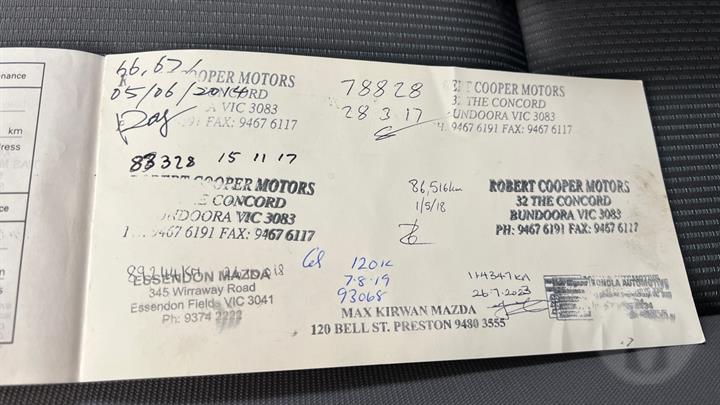 nance
km
dress
66,671
COOPER MOTORS
05/06/2014
CORD
A VIC 3083
FAX: 9467 6117
78828
28 3 17
COOPER MOTORS
THE CONCORD
BUNDOORA VIC 3083
9467 6191 FAX: 9467 6117
83328 15 11 17
ROBERT COOPER MOTORS
THE CONCORD
BUNDOORA VIC 3083
9467 6191 FAX: 9467 6117
86,516km
1/5/18
ROBERT COOPER MOTORS
32 THE CONCORD
BUNDOORA VIC 3083
PH: 9467 6191 FAX: 9467 6117
ESSENDON MAZDA
345 Wirraway Road
Essendon Fields VIC 3041
Ph: 9374 2222
120K
7-8-19
93068
MAX KIRWAN MAZDA
120 BELL ST. PRESTON 9480 3555
114347KM
26-7-2023
AUTOMOTIVE